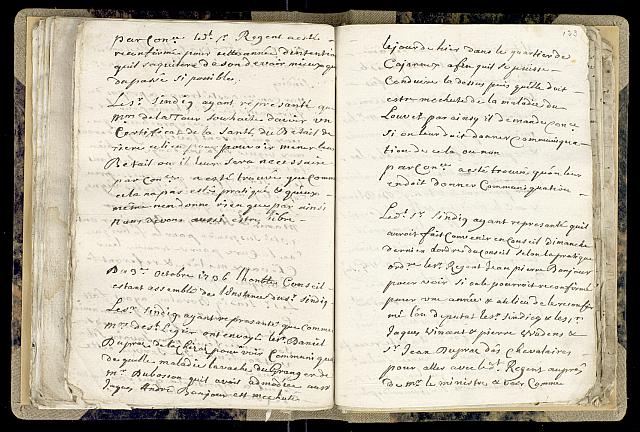 par Con.ce led.t S.r Regent a esté
reconfirmé pour cette année d'intention
qu'il s'aquitera de son devoir mieux que
du passé si possibles.
Le S.r Sindiq ayant representé que
M.rs de la Tour souhaite d'avoir un
Certificat de la Santé du Betail de
riere ce lieu pour pouvoir mener leur
Bétail ou il leur sera necessaire
par Con.ce a esté trouvée que comme
cela na pas esté pratiqué & qu'eux
même nen donne rien que par ainsi
nous devons aussi estre libre
Du 3.e Octobre 1736 l'honble Conseil
estant assemblé de l'Instance du S.r Sindiq
Le S.r Sindiq ayant representé que comme
M.rs de S.t Legier ont envoyé le S.r Daniel
Dupraz de la pour voir Communique
de quelle maladie la vache du Granger de
M.r Dubosson quil avoit admodiée au S.r
Jaques André Bonjour est mechute
133
le jour de hier dans le quartier de
Cojaroux afin quil se puisse
Conduire la dessus puis quelle doit
estre mechute de la maladie du
Louvet par ainsy il demande Con.ce
si on leur doit donner Communiqua
tion de cela ou non
par Con.ce a esté trouvé qu'on leur
en doit donner Communiquation
Led.t S.r Sindiq ayant representé quil
auroit fait convenir en Conseil dimanche
dernier dordre du Conseil selon la pratique
ord.re le S.r Regent Jean pierre Bonjour
pour voir si on le pourroit reconfirmé
pour une année & au lieu de le reconfir
mé lon deputat le S.r Sindiq & les S.rs
Jaques Vincent & pierre &
S.r Jean Dupraz das Chevalaires
pour aller avec led.t S.r Regent aupres
de M.r le ministre & voir Comme